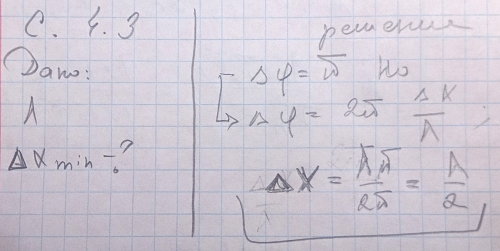 С. 4.3
Дано:
λ
Δx min - ?
решение
Δφ = π но
Δφ = 2π Δx/λ ;
Δx = λπ/2π = λ/2